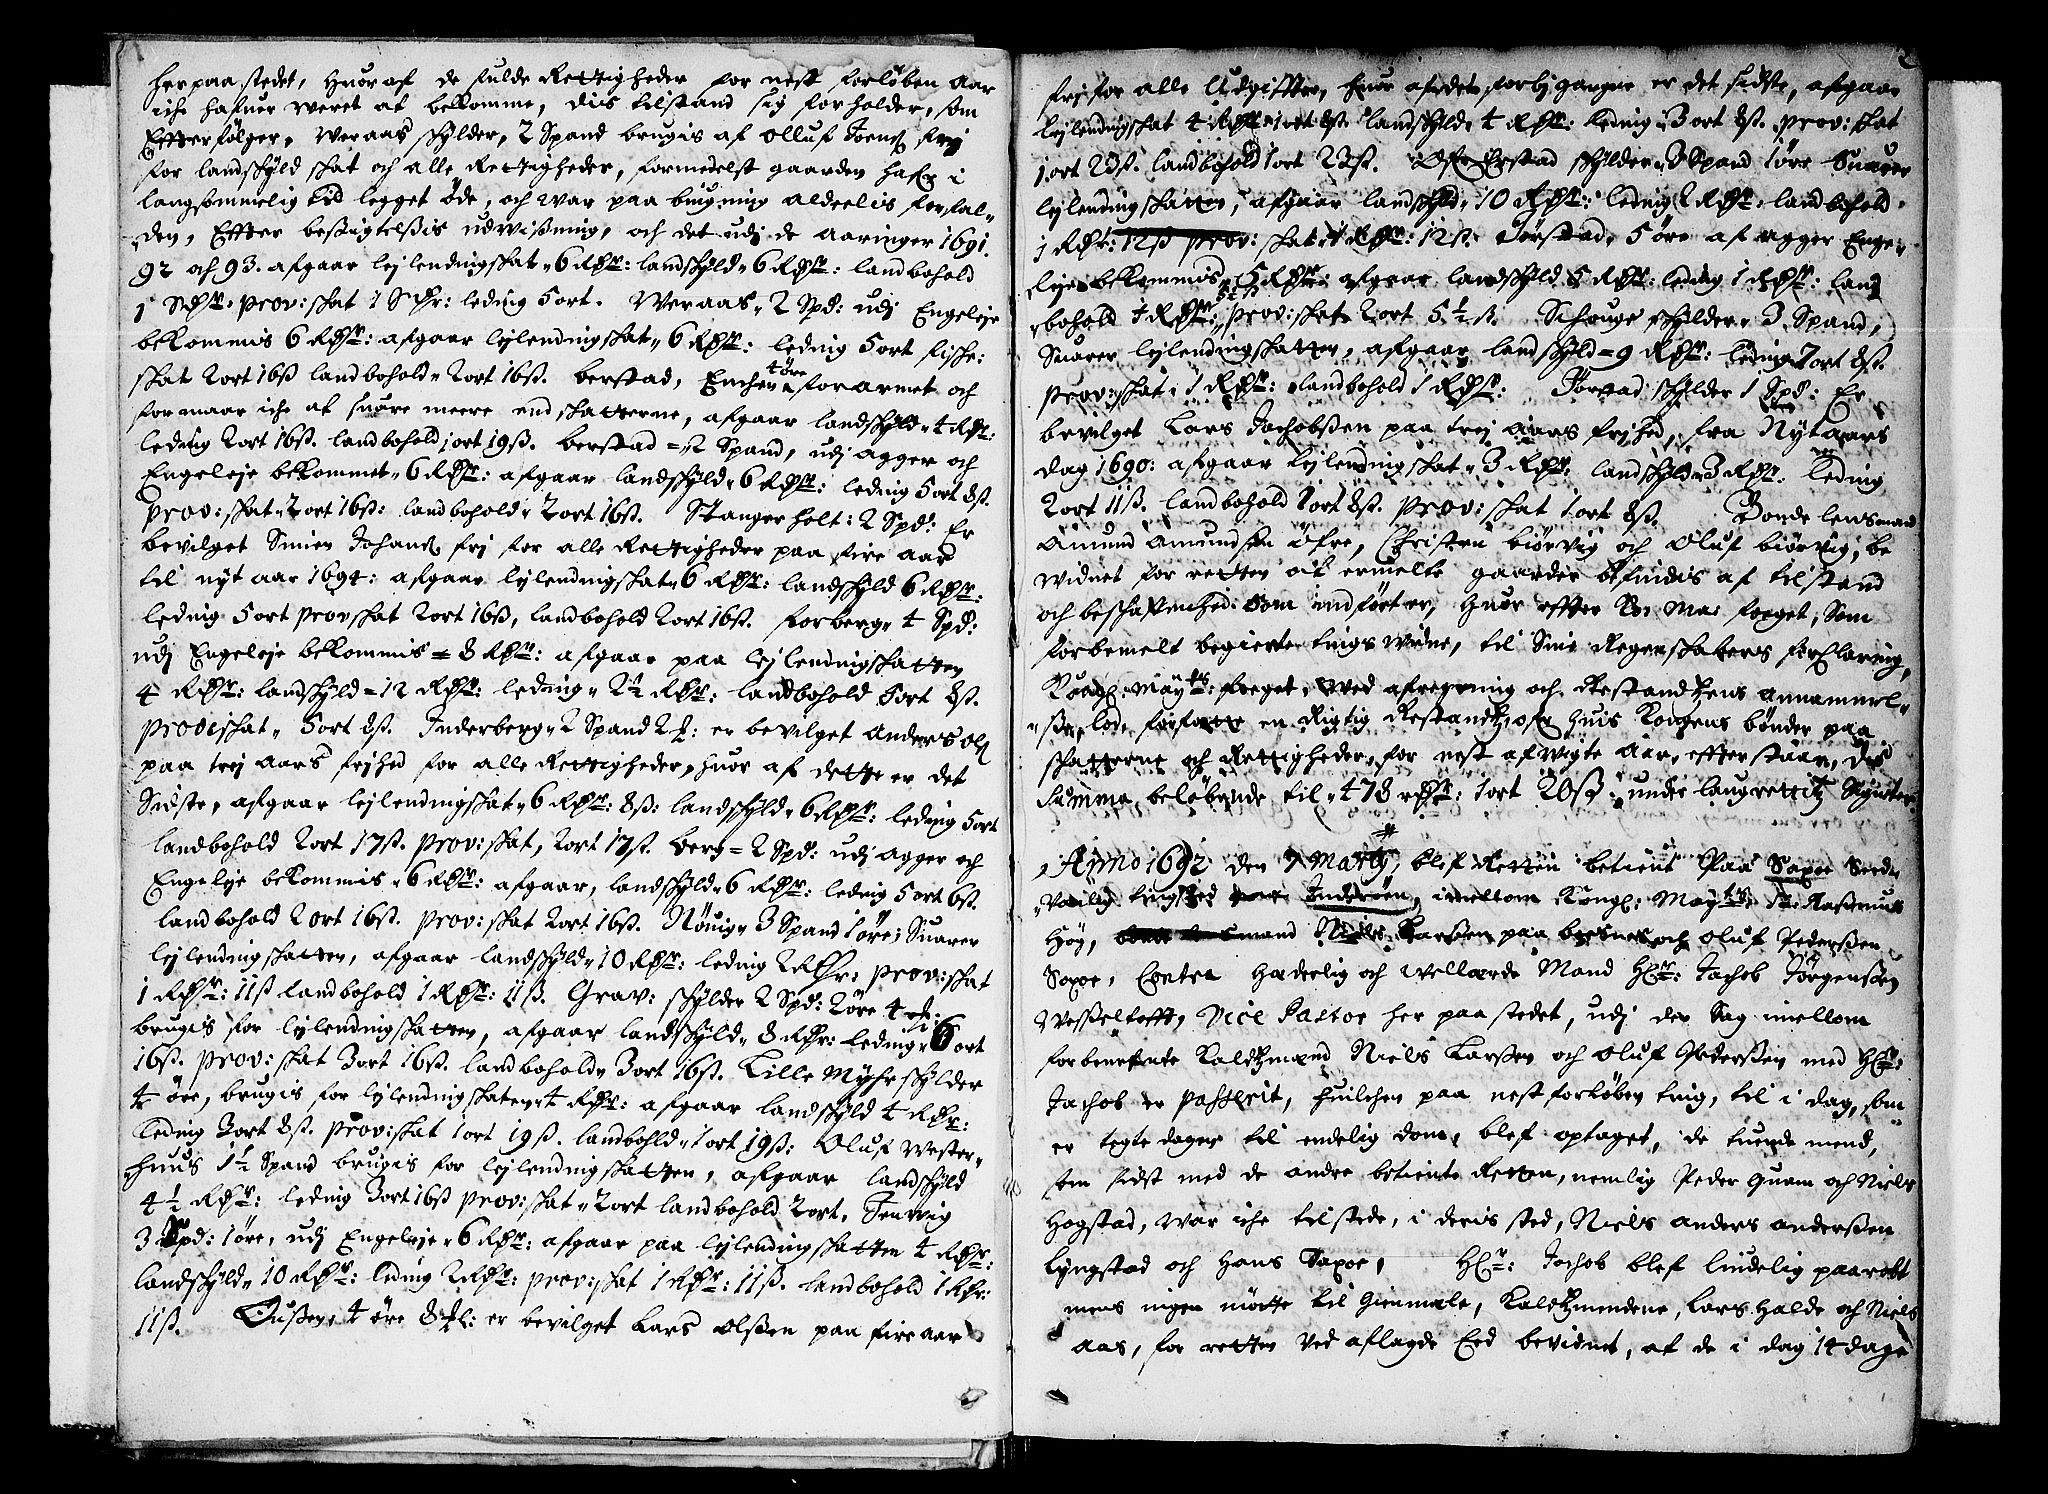 her paa stedet, huor af de fulde Rettigheder for nest forløben aar
iche hafuer weret at bekomme, diis tilstand sig forholder, som
Effterfølger, Weraas schylder, 2 Spand brugis af Olluf Joens frj
for landschyld skat och alle Rettigheder, formedelst gaarden hafr i
langsommelig tid legget øde, och war paa buigning aldeelis forfal„
„den, Effter besigtelsis udwisning, och det udj de aaringer 1691.
92 och 93. afgaar leylendingskat„ 6 Rdr: landschyld„ 6 Rdr: landbohold
1 Rdr: prov: skat 1 Rdr: leding 5 ort. Weraas„ 2 Spd: udj Engeleje
bekommis 6 Rdr: afgaar leylendingskat„ 6 Rdr: leding 5 ort
skat 2 ort 16ß landbohold„ 2 ort 16ß. berstad, Enchen 1øre forarmet och
formaar iche at suare meere end skatterne, afgaar landschyld„ 4 Rdr:
leding 2 ort 16ß. landbohold 1 ort 19ß. berstad = 2 Spand, udj agger och
Engeleje bekommet„ 6 Rdr: afgaar landschyld„ 6 Rdr: leding 5 ort 8ß.
Prov: skat„ 2 ort 16ß: landbohold„ 2 ort 16ß. Stangerholt: 2 Spd: Er
bevilget Simen Johans frj for alle Rettigheder paa fire aar
til nyt aar 1694: afgaar leylendingskat„ 6 Rdr: landschyld 6 Rdr:
leding 5 ort prov skat 2 ort 16ß, landbohold 2 ort 16ß. forberg„ 4 Spd:
udj Engeleje bekommis = 8 Rdr: afgaar paa leylendingskatten
4 Rdr: landschyld = 12 Rdr: leding„ 2½ Rdr: landbohold 5 ort 8ß.
Provi skat„ 5 ort 8ß. Inderberg„ 2 Spand 2: er bevilget Anders Ols
paa trej aars frjhed for alle Rettigheder, huor af dette er det
Sidste, afgaar leylendingskat„ 6 Rdr: 8ß: landschyld„ 6 Rdr: leding 5 ort
landbohold 2 ort 17ß. prov: skat, 2 ort 17ß. berg = 2 Spd: udj agger och
Engeleje bekommis„ 6 Rdr: afgaar, landschyld„ 6 Rdr: leding 5 ort 6ß.
landbohold 2 ort 16ß. prov: skat 2 ort 16ß. Nøuig„ 3 Spand 1 øre; Suarer
leylendingskatten, afgaar landschyld„ 10 Rdr: leding 2 Rdr: prov: skat
1 Rdr: 11ß landbohold 1 Rdr: 11ß. Grav: schylder 2 Spd: 2 øre 4
brugis for leylendingskatten, afgaar landschyld„ 8 Rdr: leding„ 6 ort
16ß. prov: skat 3 ort 16ß. landbohold„ 3 ort 16ß. Lille Myhr schylder
4 øre, brugis for leylendingskaten„ 4 Rdr: afgaar landschyld 4 Rdr:
leding 3 ort 8ß. prov: skat 1 ort 19ß. landbohld„ 1 ort 19ß: Oluf Wester„
„huus 1½ Spand brugis for leylendingskatten, afgaar landschyld
4½ Rdr: leding 3 ort 16ß prov: skat„ 2 ort landbohold 2 ort, Tenwig
3 Spd: 1 øre, udj Engeleje„ 6 Rdr: afgaar paa leylendingskatten 4 Rdr:
landschyld„ 10 Rdr: leding 2 Rdr: prov: skat 1 Rdr: 11ß. landbohold 1 Rdr:
11ß. 4 øre 8: er bevilget Lars Olssen paa fire aar
frj for alle Udgiffter, huor af det forbigangne er det sidste, afgaar
leylendingskat 4 Rdr 1 ort 8ß. landschyld„ 4 Rdr: leding„ 3 ort 8ß. prov: skat
1 ort 23ß. landbohold 1 ort 23ß. Øfr Erstad schylder„ 3 Spand 1 øre Suarer
leylendingskatten, afgaar landschyld„ 10 Rdr: leding 2 Rdr„ landbohold„
1 Rdr: 12ß prov: skat„ 1 Rdr: 12ß. Tørstad, 5 øre af agger Enge„
„leje bekommis„ 5 Rdr: afgaar landschyld 5 Rdr: leding 1 Rdr: land
„bohold 1 Rdr: 5½ß prov: skat 2 ort 5½ß. Schouge schylder„ 3 Spand,
Suarer leylendingskatten, afgaar landschyld = 9 Rdr: leding 7 ort 8ß.
prov: skat„ 1 Rdr: landbohold 1 Rdr: Torstad schylder 1 Spd: Er
bevilget Lars Jachobssen paa trej aars frjhed, fra Nytaars
dag 1690: afgaar leylendingskat„ 3 Rdr: landschyld„ 3 Rdr: leding
2 ort 11ß. landbohold 1 ort 8ß. prov: skat 1 ort 8ß. Bonde lensmand
Amund Amundsen Øfre, Christen biørvig och Oluf biørvig, be
widnet for retten at ermelte gaarder befindis af tilstand
och beschaffenhed som indført er, huor effter Ko: Ma: foeget, Som
forbemelt begierte tings widne, til Sine Regenschabers forklaring,
Kongl: Mayts: foeget, wed afregning och Restandzens annammel„
„se, lod forfatte en Rigtig Restandz, ofr huis Kongens bønder paa
skatterne och Rettigheder, for nest afwigte aar, effterstaar, dis
Summa beløbende til„ 478 rdr: 1 ort 20ß: under laugrettitz Signeter
Anno 1692 den 7 Marty, blef Retten betient paa Saxoe Sæd„
„vanlig tingsted Inderøen, imellem Kongl: Mayts: Rasmus
Høy, Niels Larssen paa och Oluf Pederssen
Saxoe, Contra Hæderlig och Wellærde Mand Hr: Jachob Jørgenssen
Wesseltofft, Vice Pastor her paa stedet, udj den Sag imellem
forbenefente Kaldzmænd Niels Larssen och Oluf Pederssen med Hr:
Jachob er Passerit, huilchen paa nest forløben ting, til i dag, som
er tegte dagen til endelig dom, blef optaget, de tuende mend,
som sidst med de andre betiente Retten, nemlig Peder Quam och Niels
Hogstad, war iche tilstede, i deris sted, Niels Anders Anderssen
Lyngstad och Hans Saxoe, Hr: Jachob blef lindelig paaraabt
mens ingen møtte til giemæle, Kaldzmendene, Lars Halde och Niels
Aas, for retten ved aflagde Eed bevidnet, at de i dag 14 dage